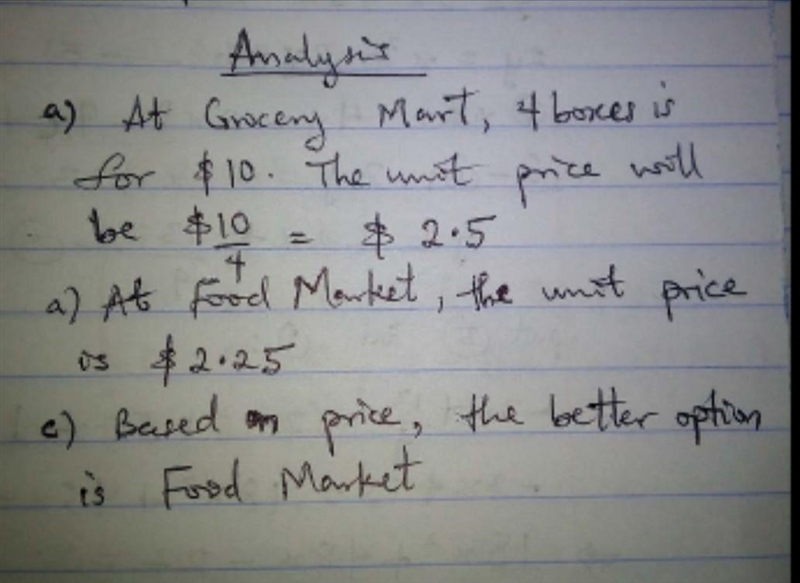 Analysis
a) At Grocery Mart, 4 boxes is
for $10. The unit price will
be $10/4 = $ 2.5
a) At Food Market, the unit price
is $2.25
c) Based on price, the better option
is Food Market